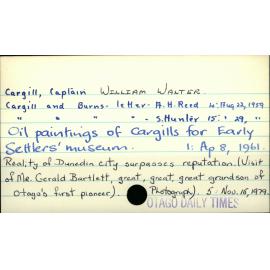 Cargill, Captain WILLIAM WALTER.
Cargill and Burns - letter - A.H. Reed 4: Aug 22, 1959
" " " " - S. Hunter 15: " 29, "
Oil paintings of Cargills for Early
Settlers' museum. 1: Ap 8, 1961.
Reality of Dunedin city surpasses reputation. (Visit
of Mr. Gerald Bartlett, great, great, great grandson of
Otago's first pioneer). Photograph). 5: Nov. 15, 1979.
OTAGO DAILY TIMES